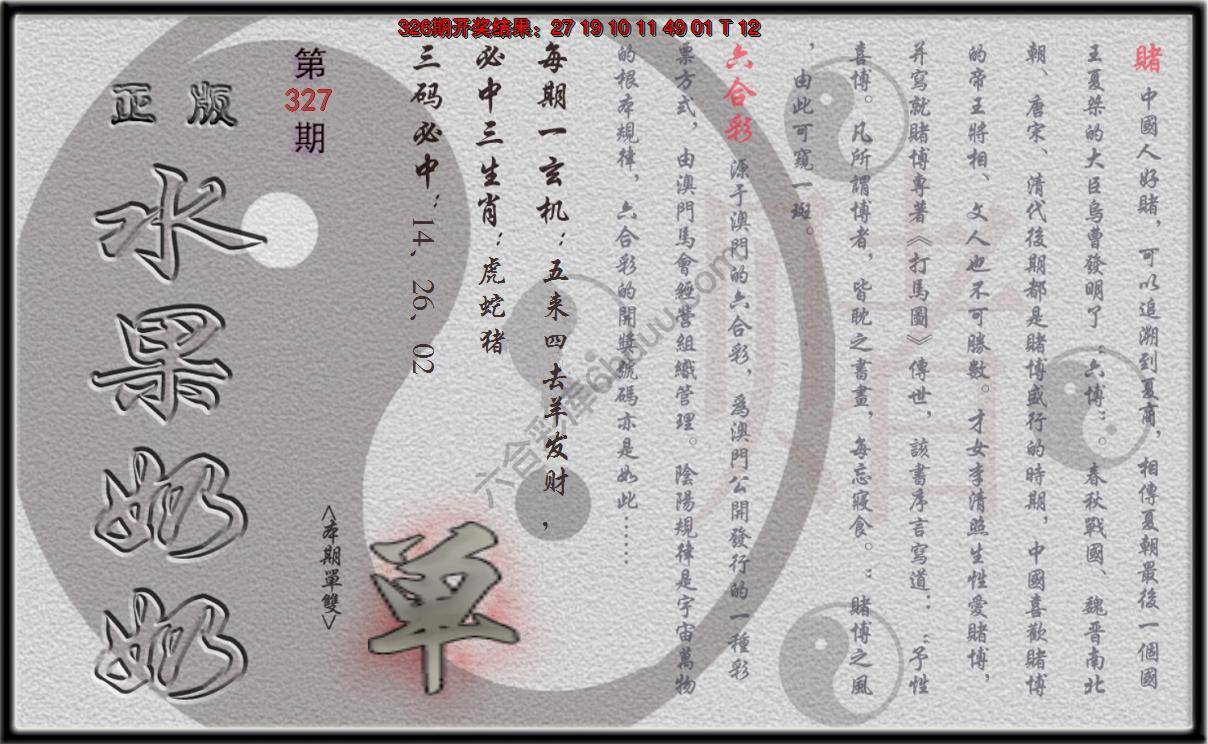 326期开奖结果：27 19 10 11 49 01 T 12
賭 中國人好賭，可以追溯到夏商，相傳夏朝最後一個國
王夏桀的大臣烏曹發明了“六博”。春秋戰國、魏晋南北
朝、唐宋、清代後期都是賭博盛行的時期，中國喜歡賭博
的帝王將相、文人也不可勝數。才女李清照生性愛賭博，
并寫就賭博專著《打馬圖》傳世，該書序言寫道：“予性
喜博。凡所謂博者，皆耽之書畫，每忘寢食。：賭博之風
，由此可窺一斑。
六合彩 源于澳門的六合彩，爲澳門公開發行的一種彩
票方式，由澳門馬會經營組織管理。陰陽規律是宇宙萬物
的根本規律，六合彩的開獎號碼亦是如此……
每期一玄机：五来四去羊发财，
必中三生肖：虎蛇猪
三码必中：14、26、02
第
327
期
<本期單雙>
單
正版
水果奶奶
賭
六合彩库6hduu.com